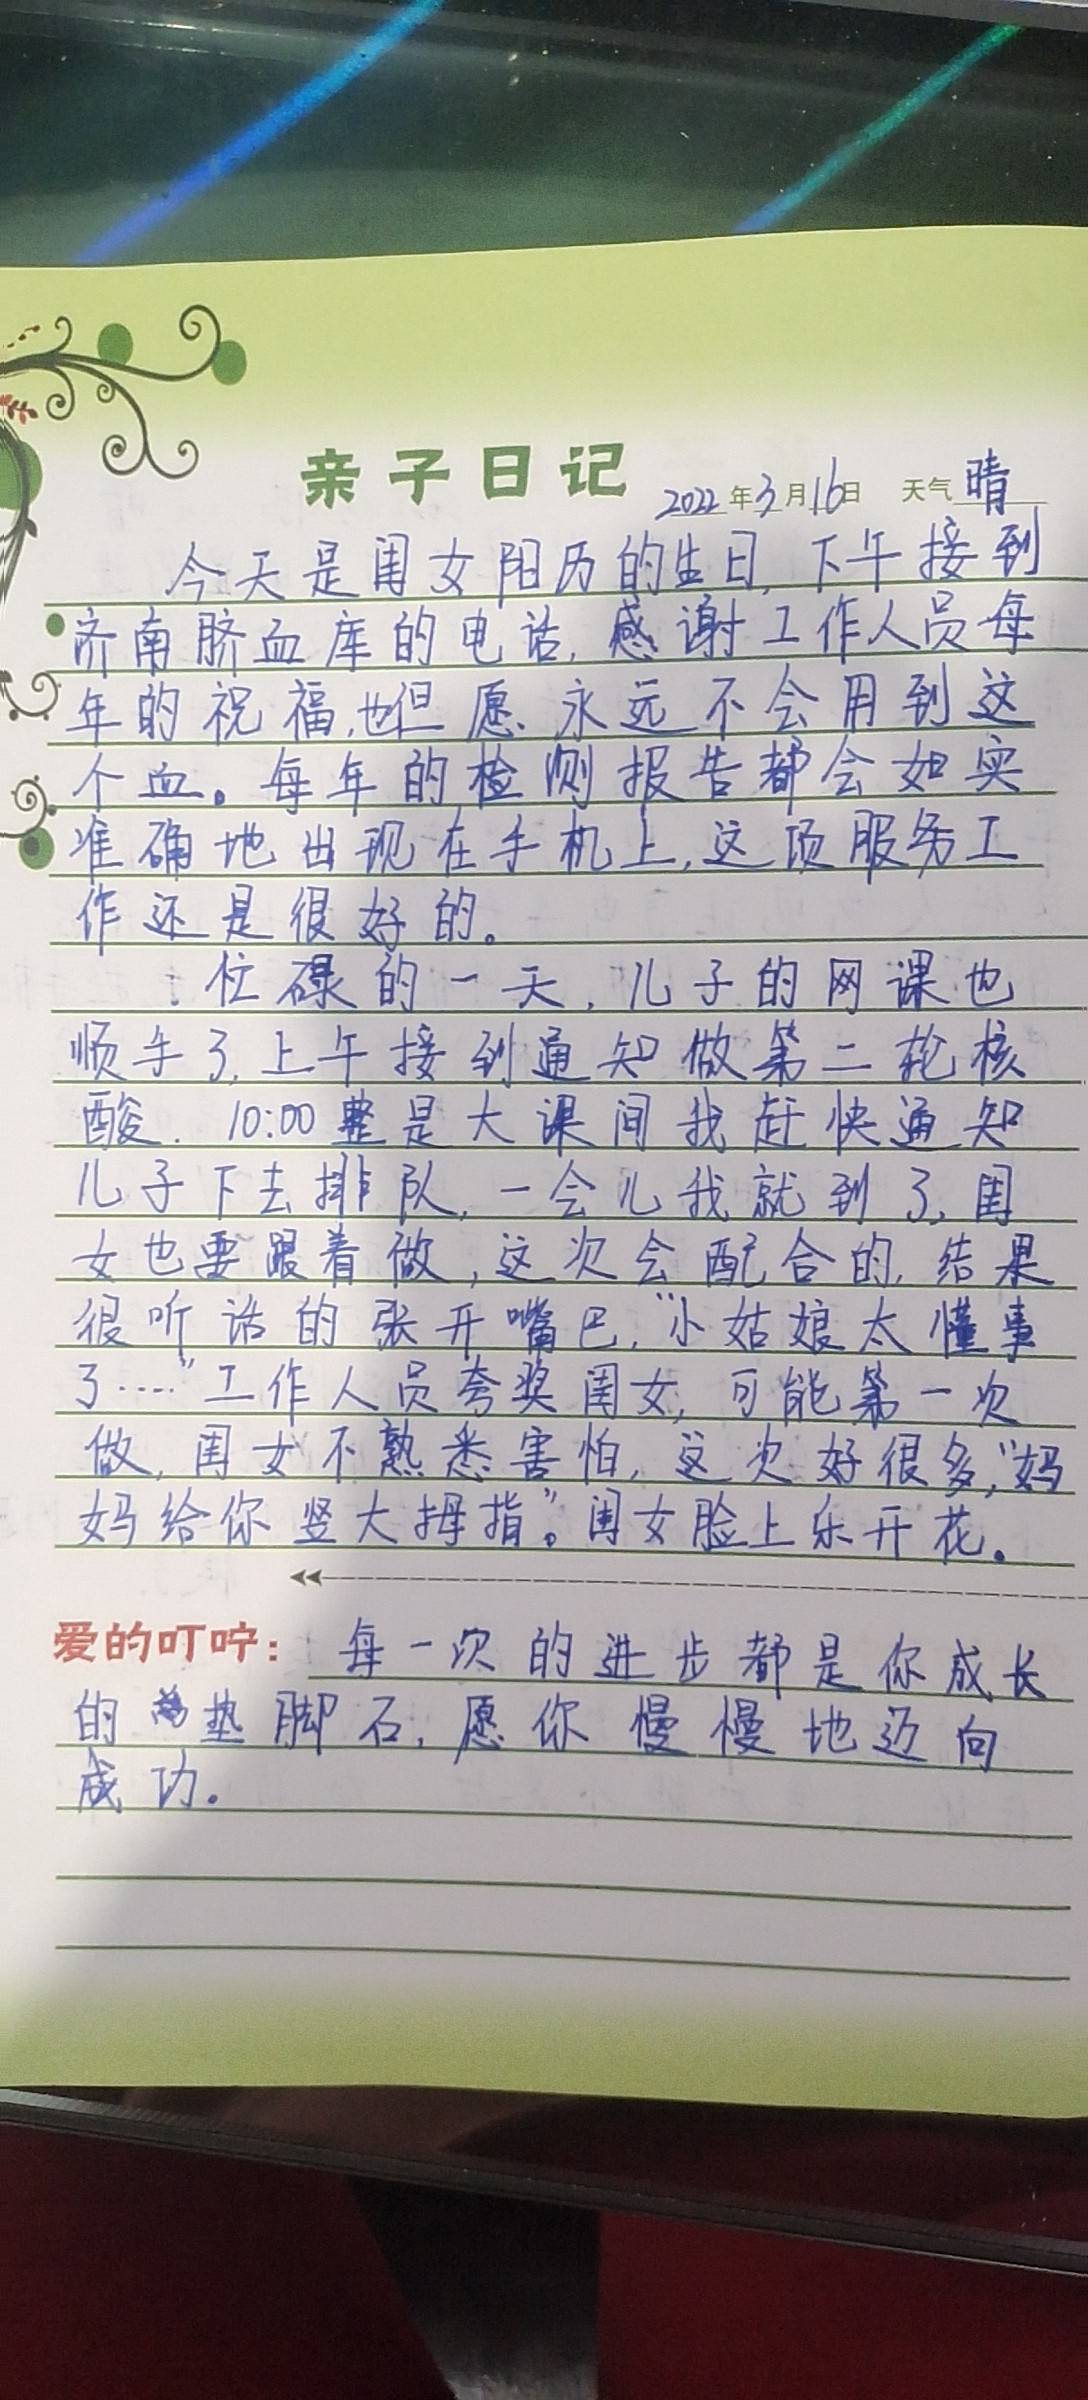 亲子日记 2022年3月16日 天气 晴
今天是闺女阳历的生日,下午接到
济南脐血库的电话,感谢工作人员每
年的祝福,也但愿永远不会用到这
个血。每年的检测报告都会如实
准确地出现在手机上,这项服务工
作还是很好的。
忙碌的一天,儿子的网课也
顺手了,上午接到通知做第二轮核
酸.10:00整是大课间我赶快通知
儿子下去排队,一会儿我就到了,闺
女也要跟着做,这次会配合的,结果
很听话的张开嘴巴,“小姑娘太懂事
了……”工作人员夸奖闺女,可能第一次
做,闺女不熟悉害怕,这次好很多,“妈
妈给你竖大拇指”。闺女脸上乐开花。
爱的叮咛:每一次的进步都是你成长
的垫脚石,愿你慢慢地迈向
成功。